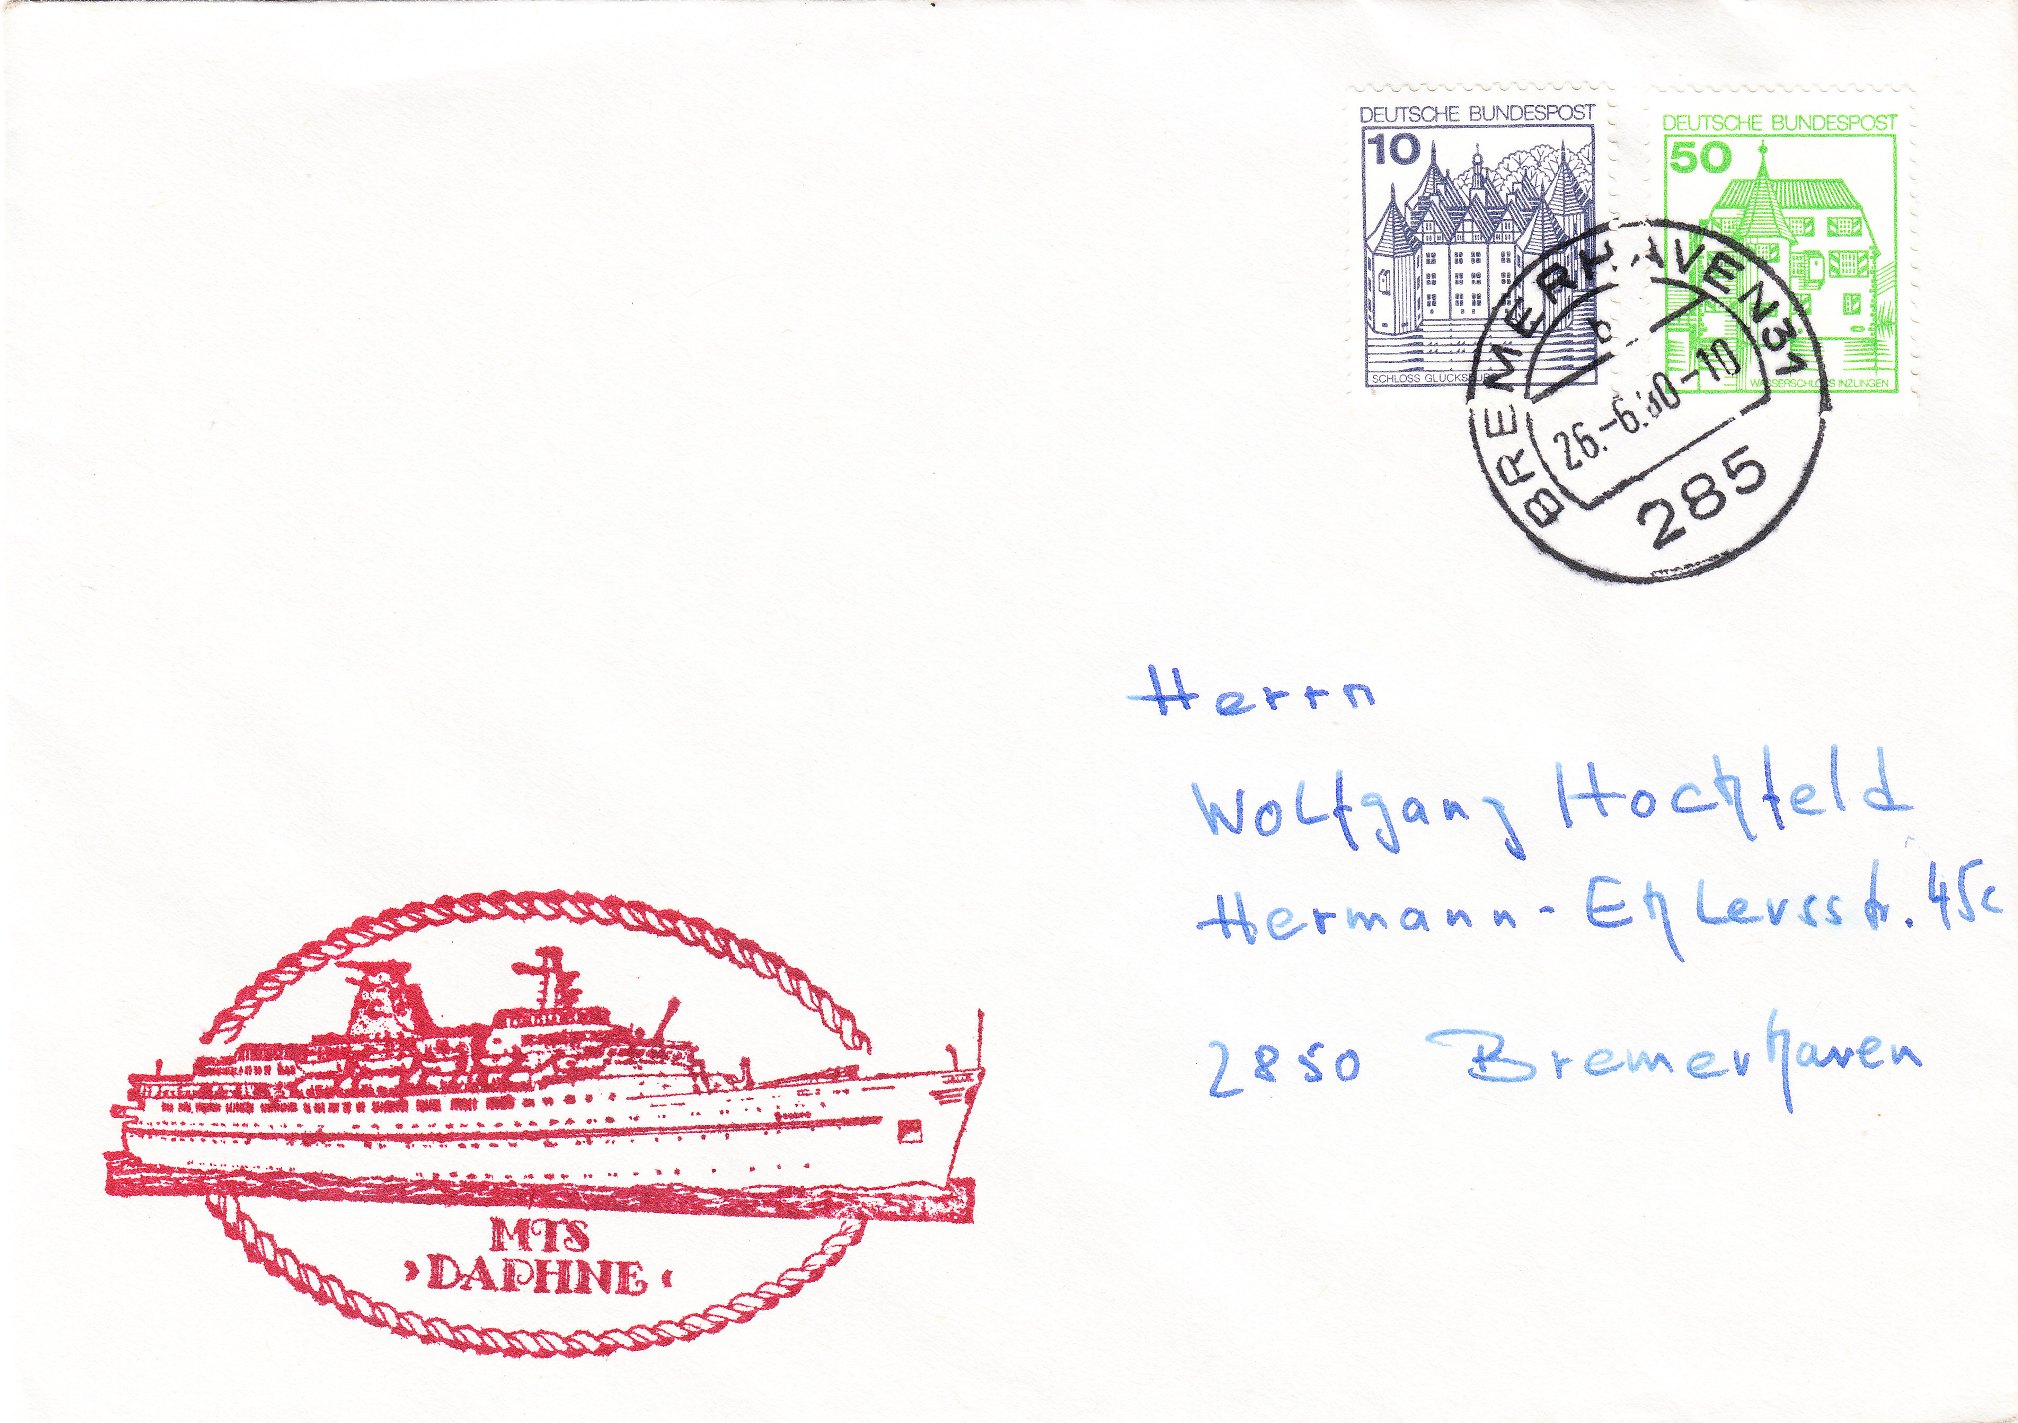 DEUTSCHE BUNDESPOST
10
SCHLOSS GLÜCKSBURG
DEUTSCHE BUNDESPOST
50
WASSERSCHLOSS INZLINGEN
BREMERHAVEN 31
26.-6.80-10
285
Herrn
Wolfgang Hochfeld
Hermann-Ehlersstr. 45c
2850 Bremerhaven
MTS
›DAPHNE‹